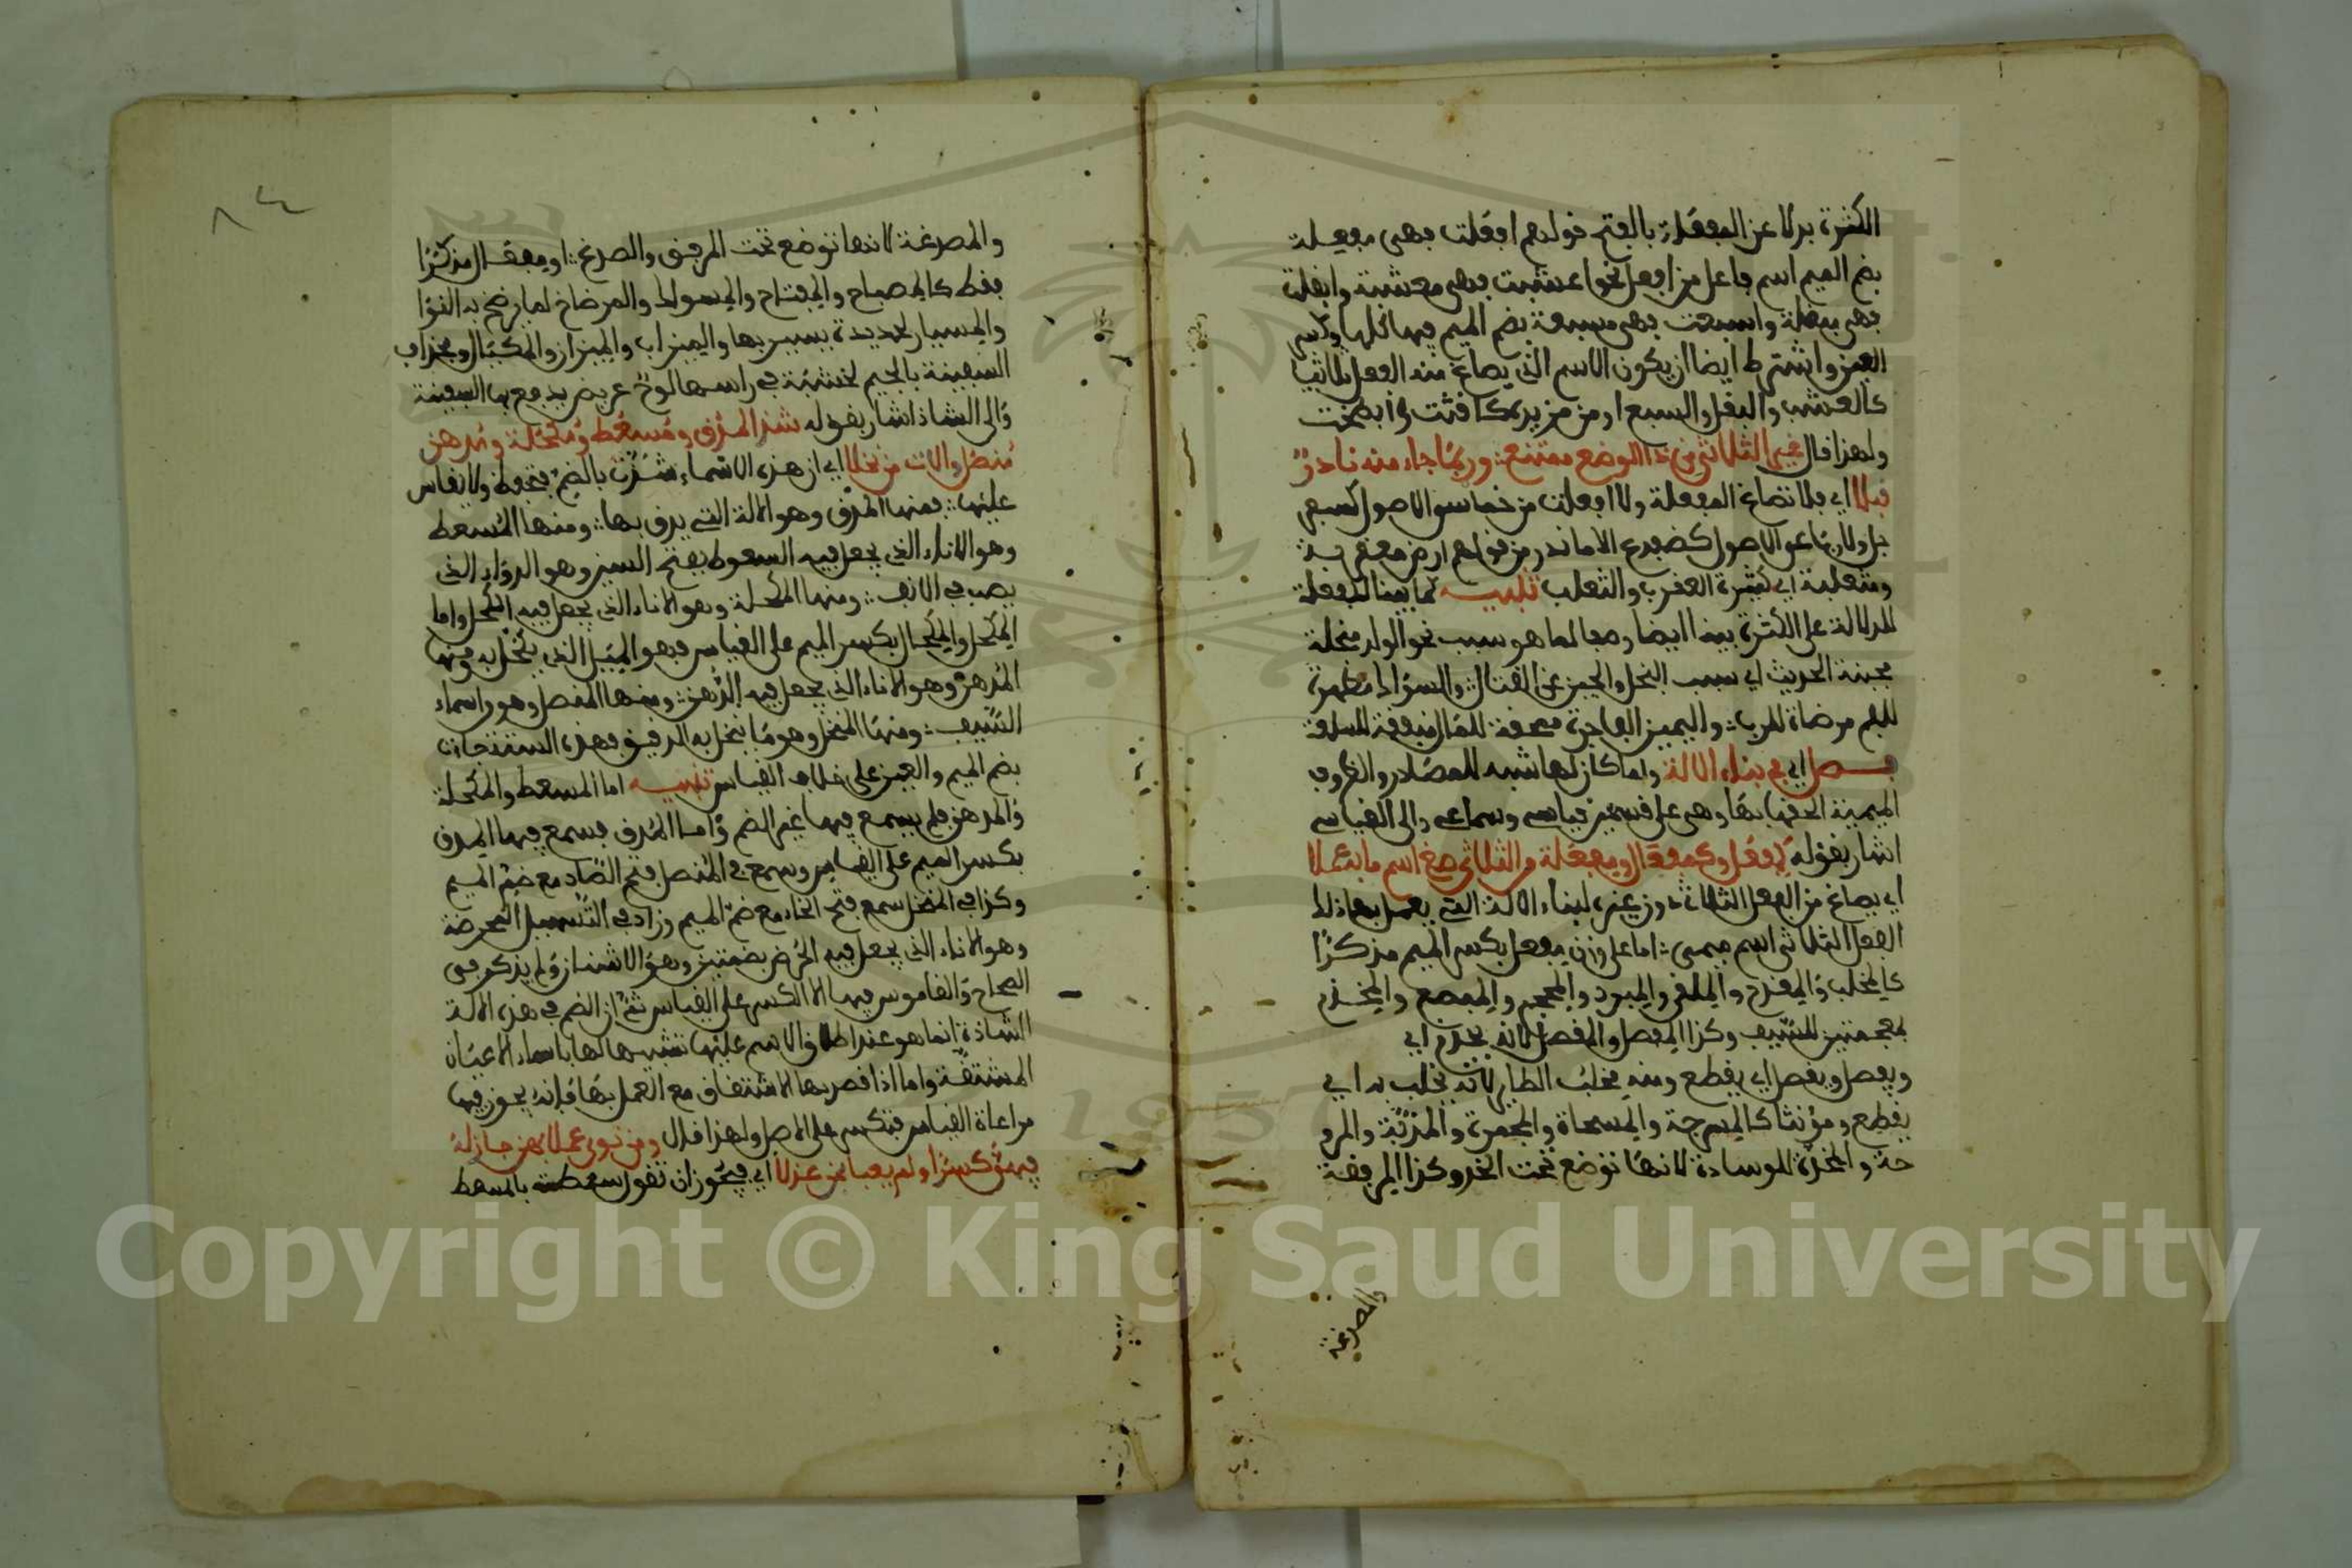 الكثرة بدلا عن المفعلة بالفتح قولهم افعلت فهي مفعلة
بضم الميم اسم فاعل من افعل نحو اعشبت فهي معشبة وابقلت
فهي مبقلة واسبعت فهي مسبعة بضم الميم فيها كلها وكسر
العين واشترط ايضا ان يكون الاسم الذي يصاغ منه الفعل ثلاثيا
كالعشب والبقل والسبع او من مزيده كاقثت وابطخت
ولهذا قال غير الثلاثي من ذا الوضع ممتنع وربما جاء منه نادر
قبلا اي فلا تصاغ المفعلة ولا افعلت من خماسي الاصول كسفر
جل ولا رباعي الاصول كضفدع الا ما ندر من قولهم ارض معقربة
ومثعلبة اي كثيرة العقرب والثعلب تنبيه كما بنيا المفعلة
للدلالة على الكثرة بنيا ايضا وصفا لما هو سبب نحو الولد مبخلة
مجبنة الحديث اي سبب البخل والجبن عن القتال والسواك مطهرة
للفم مرضاة للرب واليمين الفاجرة ممحقة للمال منفقة للسلعة
فصل اي في بناء الالة ولما كان لها شبه للمصادر والظروف
الميمية الحقها بها وهي على قسمين قياسي وسماعي والى القياسي
اشار بقوله كمفعل وكمفعال ومفعلة من الثلاثي صغ اسم ما به عملا
اي يصاغ من الفعل الثلاثي دون غيره لبناء الالة التي يعمل بها ذلك
الفعل الثلاثي اسم ميمي اما على وزن مفعل بكسر الميم مذكرا
كالمحلب والمقدح والملقى والمبرد والمحجم والمبضع والمخذم
بمعجمتين للسيف وكذا المفصل والمقصل لانه يخذم اي
ويفصل ويقصل اي يقطع ومنه مخلب الطاير لانه يخلب به اي
يقطع ومؤنثا كالمسرجة والمسحاة والمجمرة والمذبة والمرو
حة والمخدة للوسادة لانها توضع تحت الخد وكذا المرفقة
والمصدغة
والمصدغة لانها توضع تحت المرفق والصدغ او مفعال مذكرا
فقط كالمصباح والمفتاح والمسواك والمرضاخ لما يرضخ به النوا
والمسبار لحديدة يسبر بها والميزاب والميزان والمكيال ومجذاف
السفينة بالجيم لخشبة في راسها لوح عريض يدفع بها السفينة
والى الشاذ اشار بقوله شذ المدق ومسعط ومكحلة ومدهن
منصل والات من نخلا اي ان هذه الاسماء شذت بالضم فتحفظ ولا يقاس
عليها فمنها المدق وهو الالة التي يدق بها ومنها المسعط
وهو الاناء الذي يجعل فيه السعوط بفتح السين وهو الدواء الذي
يصب في الانف ومنها المكحلة وهو الاناء الذي يجعل فيه الكحل واما
المكحل والمكحال بكسر الميم على القياس فهو الميل الذي يكحل به ومنها
المدهن وهو الاناء الذي يجعل فيه الدهن ومنها المنصل وهو من اسماء
السيف ومنها المنخل وهو ما ينخل به الدقيق فهذه الست جاءت
بضم الميم والعين على خلاف القياس تنبيه اما المسعط والمكحلة
والمدهن فلم يسمع فيها غير الضم واما المدق فسمع فيها المدق
بكسر الميم على القياس وسمع في المنصل فتح الصاد مع ضم الميم
وكذا في المنخل سمع فتح الخاء مع ضم الميم وزاد في التسهيل المحرضة
وهو الاناء الذي يجعل فيه الحرض بضمتين وهو الاشنان ولم يذكر في
الصحاح والقاموس فيها الا الكسر على القياس ثم ان الضم في هذه الالة
الشاذة انما هو عند اطلاق الاسم عليها تشبيها لها باسماء الاعيان
المشتقة واما اذا قصد بها الاشتقاق مع العمل بها فانه يجوز فيها
مراعاة القياس فتكسر على الاصل ولهذا قال ومن نوى عملا بهن جاز له
فيهن كسرا ولم يعبا بمن عذلا اي فيجوز ان تقول سعطته بالمسعط
Copyright © King Saud University
1957